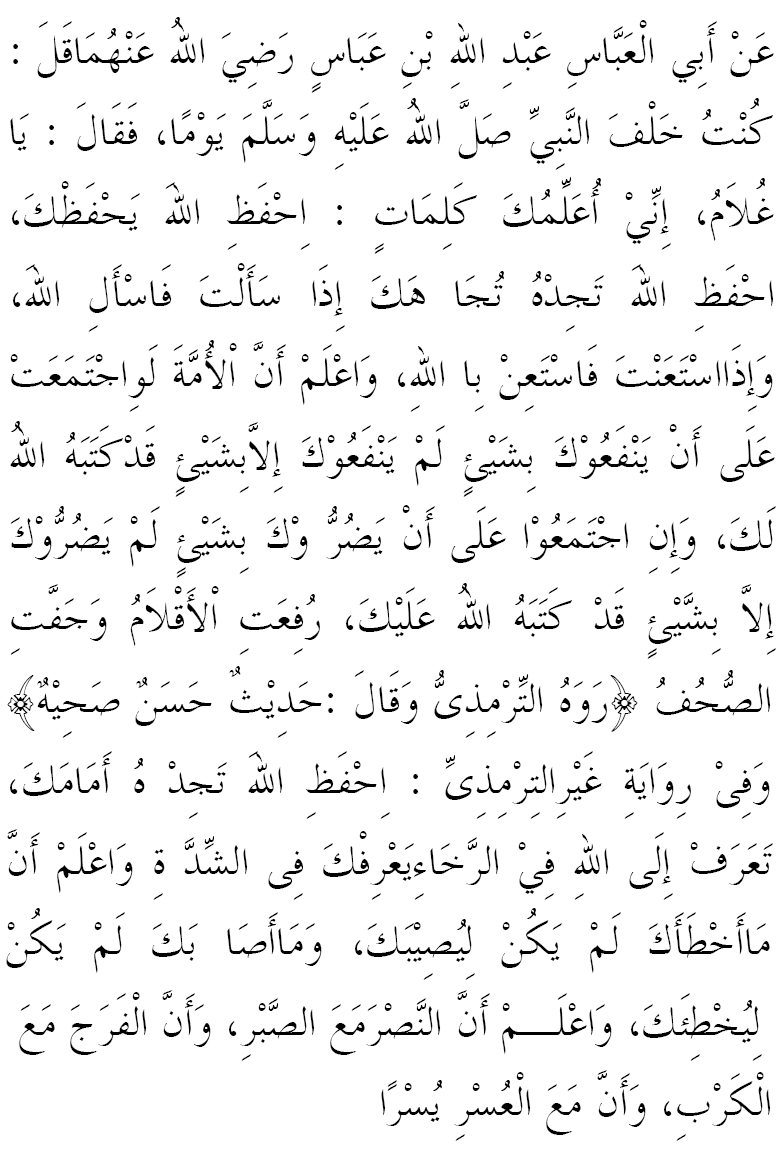 عَنْ أَبِي الْعَبَّاسِ عَبْدِ اللهِ بْنِ عَبَاسٍ رَضِيَ اللهُ عَنْهُمَاقَلَ :
كُنْتُ خَلْفَ النَّبِيِّ صَلَّ اللهُ عَلَيْهِ وَسَلَّمَ يَوْمًا، فَقَالَ : يَا
غُلاَمُ، إِنِّيْ أُعَلِّمُكَ كَلِمَاتٍ : اِحْفَظِ اللهَ يَحْفَظْكَ،
احْفَظِ اللهَ تَجِدْهُ تُجَا هَكَ إِذَا سَأَلْتَ فَاسْأَلِ اللهَ،
وَإِذَااسْتَعَنْتَ فَاسْتَعِنْ بِا اللهِ، وَاعْلَمْ أَنَّ اْلأُمَّةَ لَوِاجْتَمَعَتْ
عَلَى أَنْ يَنْفَعُوْكَ بِشَيْئٍ لَمْ يَنْفَعُوْكَ إِلاَّبِشَيْئٍ قَدْكَتَبَهُ اللهُ
لَكَ، وَإِنِ اجْتَمَعُوْا عَلَى أَنْ يَضُرُّ وْكَ بِشَيْئٍ لَمْ يَضُرُّوْكَ
إِلاَّ بِشَّيْئٍ قَدْ كَتَبَهُ اللهُ عَلَيْكَ، رُفِعَتِ اْلأَقْلاَمُ وَجَفَّتِ
الصُّحُفُ ﴿رَوَهُ التِّرْمِذِىُّ وَقَالَ :حَدِيْثٌ حَسَنٌ صَحِيْهٌ﴾
وَفِىْ رِوَايَةِ غَيْرِالتِرْمِذِىِّ : اِحْفَظِ اللهَ تَجِدْ هُ أَمَامَكَ،
تَعَرَفْ إِلَى اللهِ فِيْ الرَّخَاءِيَعْرِفْكَ فِى الشِّدَّ ةِ وَاعْلَمْ أَنَّ
مَاأَخْطَأَكَ لَمْ يَكُنْ لِيُصِيْبَكَ، وَمَاأَصَا بَكَ لَمْ يَكُنْ
لِيُخْطِئَكَ، وَاعْلَـــمْ أَنَّ النَّصْرَمَعَ الصَّبْرِ، وَأَنَّ الْفَرَجَ مَعَ
الْكَرْبِ، وَأَنَّ مَعَ الْعُسْرِ يُسْرًا